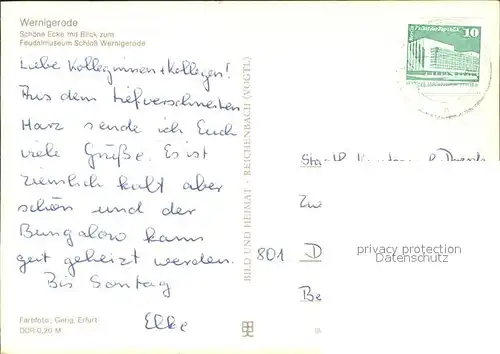 Wernigerode
Schöne Ecke mit Blick zum
Feudalmuseum Schloß Wernigerode
Liebe Kolleginnen + Kollegen!
Aus dem tiefverschneiten
Harz sende ich Euch
viele Grüße. Es ist
ziemlich kalt aber
schön und der
Bungalow kann
gut geheizt werden.
Bis Sontag
Elke
Farbfoto: Gerig, Erfurt
DDR 0,20 M
BILD UND HEIMAT · REICHENBACH (VOGTL)
10
801 D
Be
privacy protection
Datenschutz